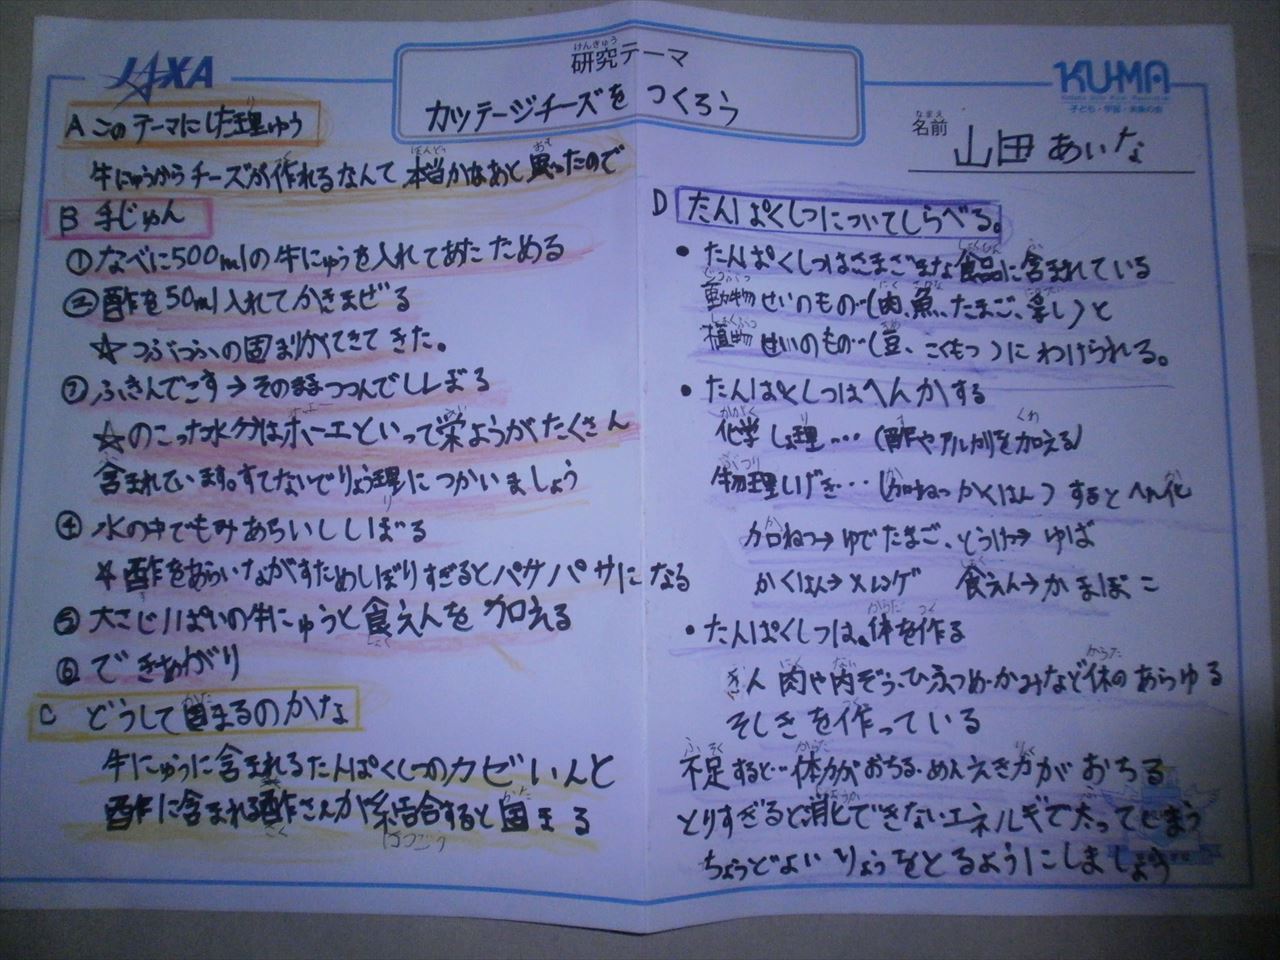 JAXA
けんきゅう
研究テーマ
カッテージチーズをつくろう
KU-MA
子ども・宇宙・未来の会
なまえ
名前 山田あいな
A このテーマにした理ゆう
牛にゅうからチーズが作れるなんて本当かなあと思ったので
B 手じゅん
①なべに500mlの牛にゅうを入れてあたためる
②酢を50ml入れてかきまぜる
☆つぶつぶの固まりができてきた。
③ふきんでこす→そのままつつんでしぼる
☆のこった水分はホエーといって栄ようがたくさん
含まれています。すてないでりょう理につかいましょう
④水の中でもみあらいししぼる
*酢をあらいながすためしぼりすぎるとパサパサになる
⑤大さじ1ぱいの牛にゅうと食えんを加える
⑥できあがり
C どうして固まるのかな
牛にゅうに含まれるたんぱくしつのカゼいんと
酢に含まれる酢さんが結合すると固まる
D たんぱくしつについてしらべる。
・たんぱくしつはさまざまな食品に含まれている
動物せいのもの…(肉、魚、たまご、)と
植物せいのもの…(豆、こくもつ)にわけられる。
・たんぱくしつはへんかする
化学しょ理…(酢やアルカリを加える)
物理しげき…(加ねつかくはん)するとへん化
加ねつ→ゆでたまご、とうにゅう→ゆば
かくはん→メレンゲ 食えん→かまぼこ
・たんぱくしつは、体を作る
きん肉や内ぞう、ひふ、つめ・かみなど体のあらゆる
そしきを作っている
不足すると…体力がおちる・めんえき力がおちる
とりすぎると消化できないエネルギーで太ってしまう
ちょうどよいりょうをとるようにしましょう